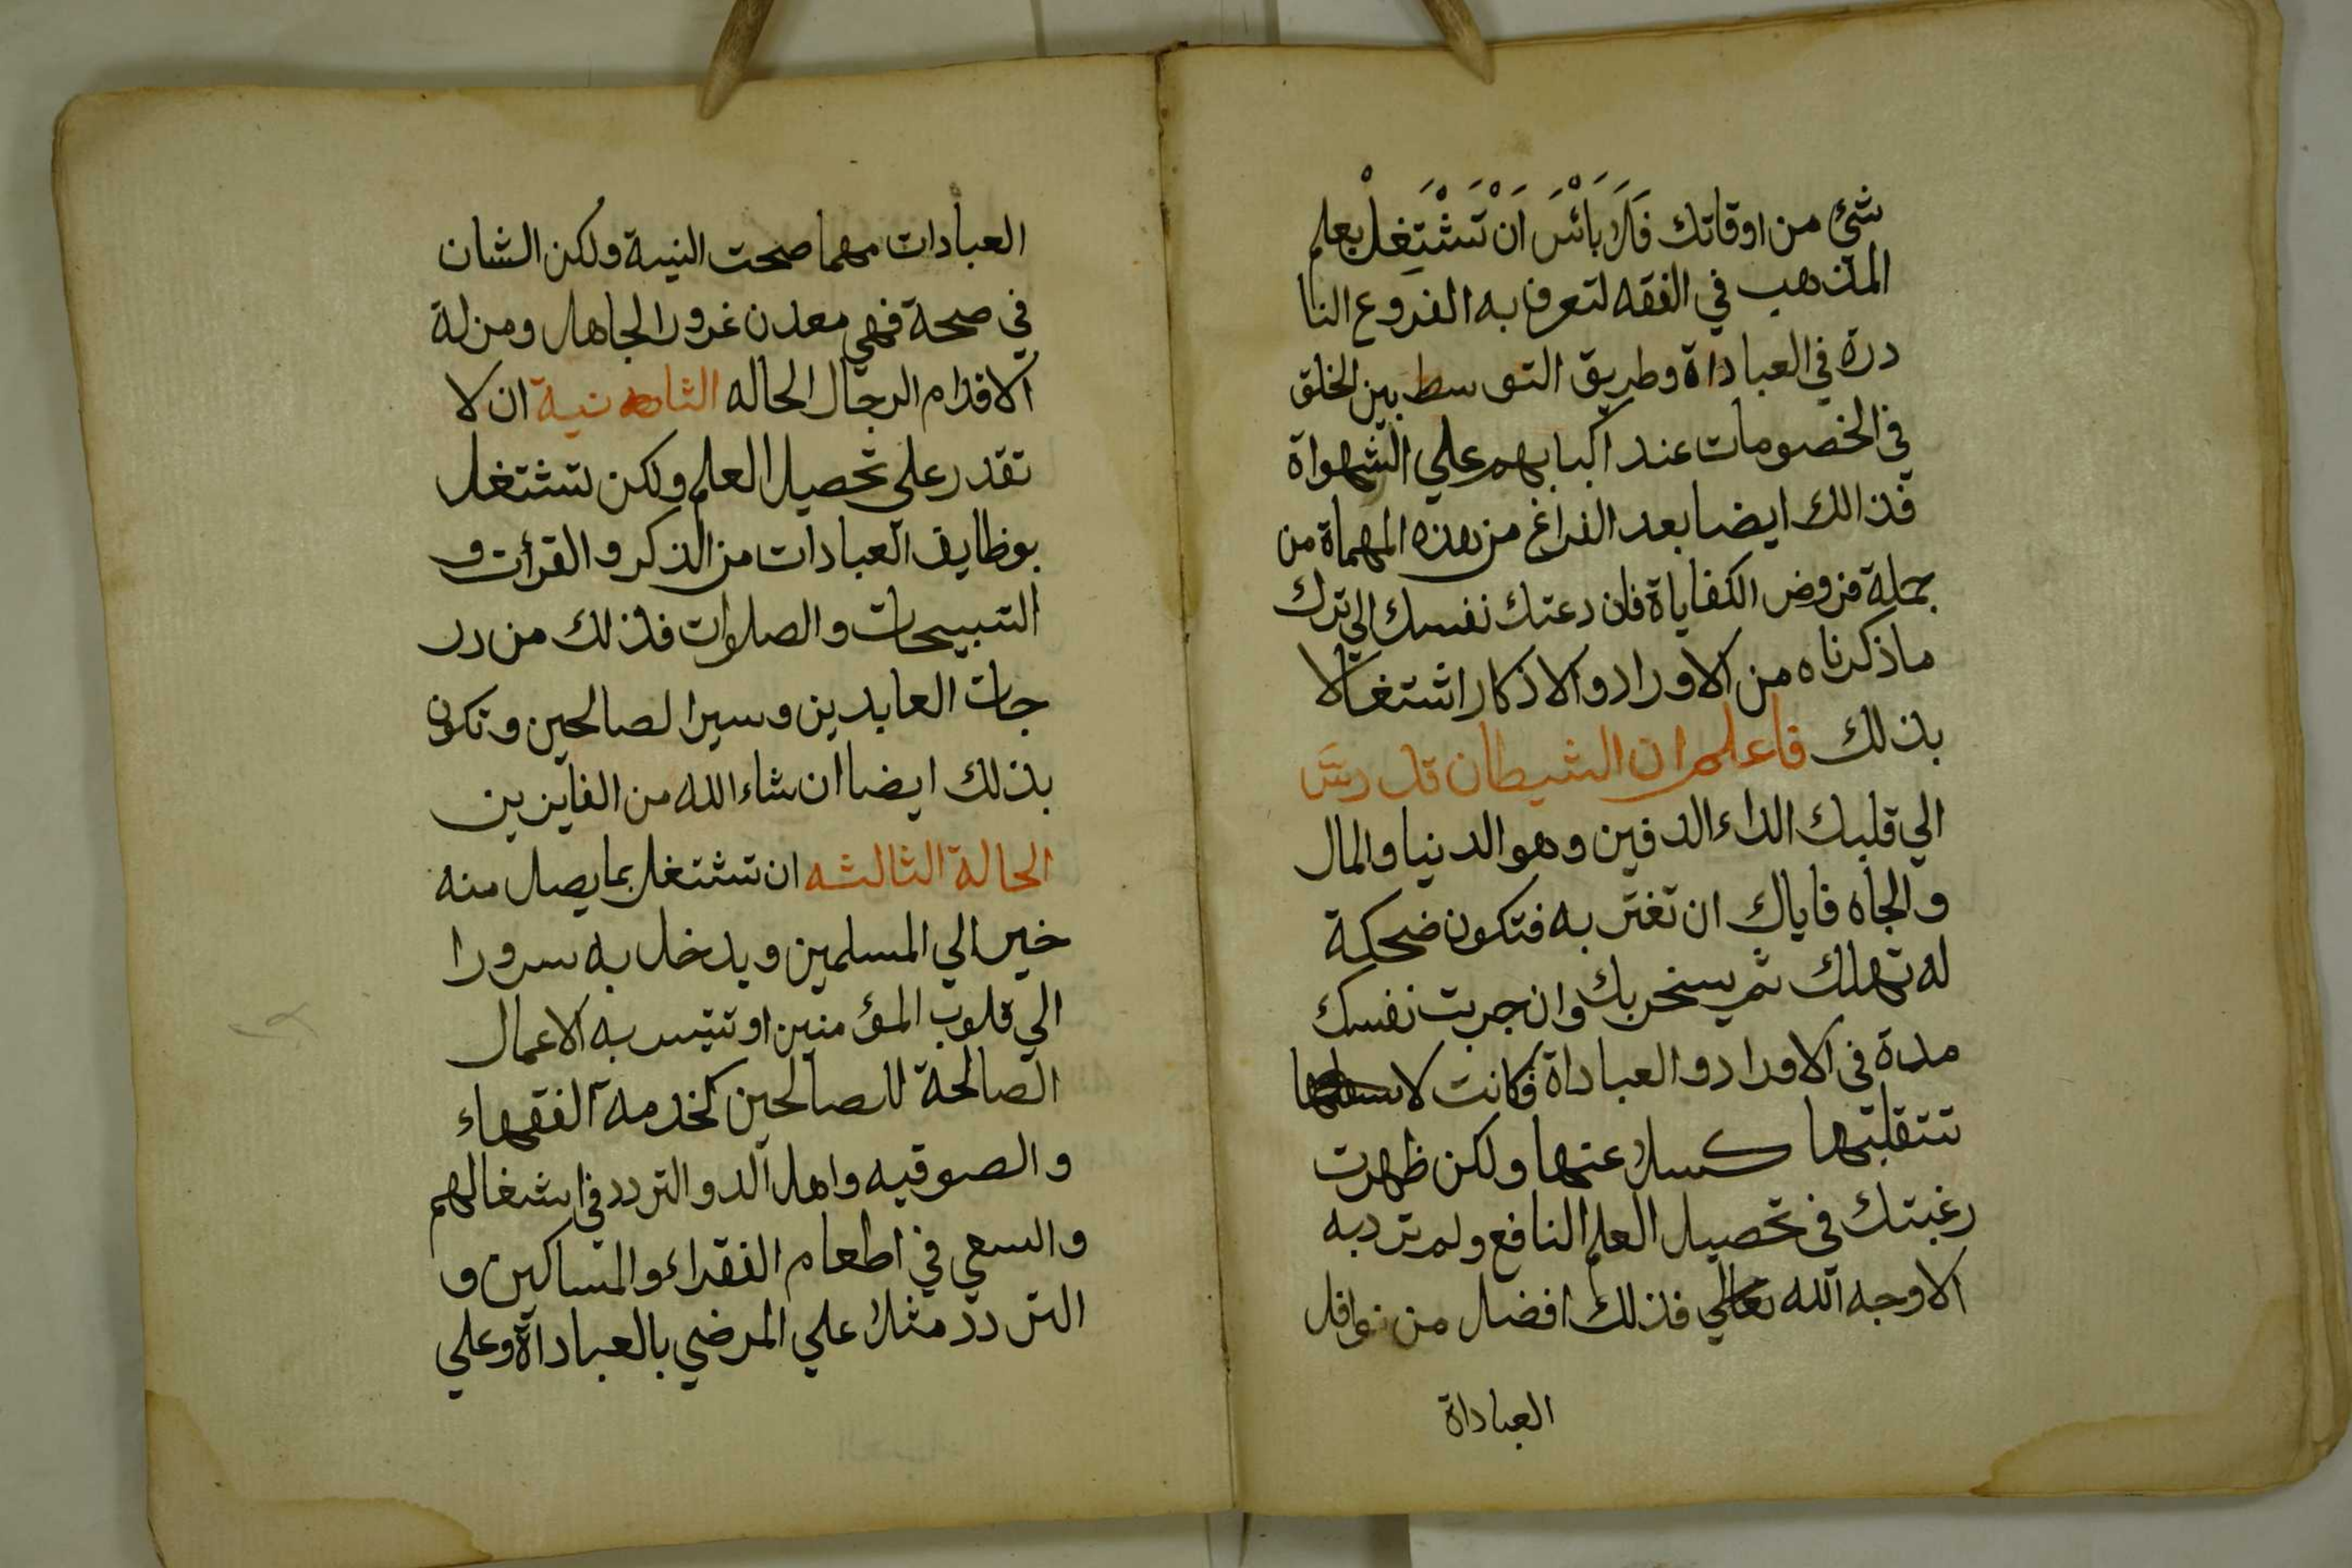 شئ من اوقاتك فَلَا بَائْسَ اَنْ تَشْتَغِلْ بعلم
المذهب في الفقه لتعرف به الفروع النا
درة في العباداة وطريق التوسط بين الخلق
في الخصومات عند اكبابهم علي الشهواة
فذالك ايضا بعد الفراغ من هذه المهماة من
جملة فروض الكفاياة فان دعتك نفسك الي ترك
ما ذكرناه من الاوراد والاذكار اشتغالا
بذلك فاعلم ان الشيطان قد دسّ
الي قلبك الداء الدفين وهو الدنيا والمال
والجاه فاياك ان تغتر به فتكون ضحكة
له تهلك ثم يسخر بك وان جربت نفسك
مدة في الاوراد والعباداة فكانت لا
تتقلبتها كسلا عنها ولكن ظهرت
رغبتك في تحصيل العلم النافع ولم ترد به
الا وجه الله تعالي فذلك افضل من نوافل
العباداة
العبادات مهما صحت النية ولكن الشان
في صحة فهي معدن غرور الجاهل ومزلة
الاقدام الرجال الحاله الثانية ان لا
تقدر علي تحصيل العلم ولكن تشتغل
بوظايف العبادات من الذكر والقرأت و
التسبيحات والصلوات فذلك من در
جات العابدين وسير الصالحين وتكون
بذلك ايضا ان شاء الله من الفايزين
الحالة الثالثه ان تشتغل بما يصل منه
خير الي المسلمين ويدخل به سرورا
الي قلوب المؤمنين او تتيسر به الاعمال
الصالحة للصالحين كخدمة الفقهاء
والصوفيه واهل الد والتردد في اشغالهم
والسعي في اطعام الفقراء والمساكين و
التردد مثلا علي المرضي بالعباداة وعلي